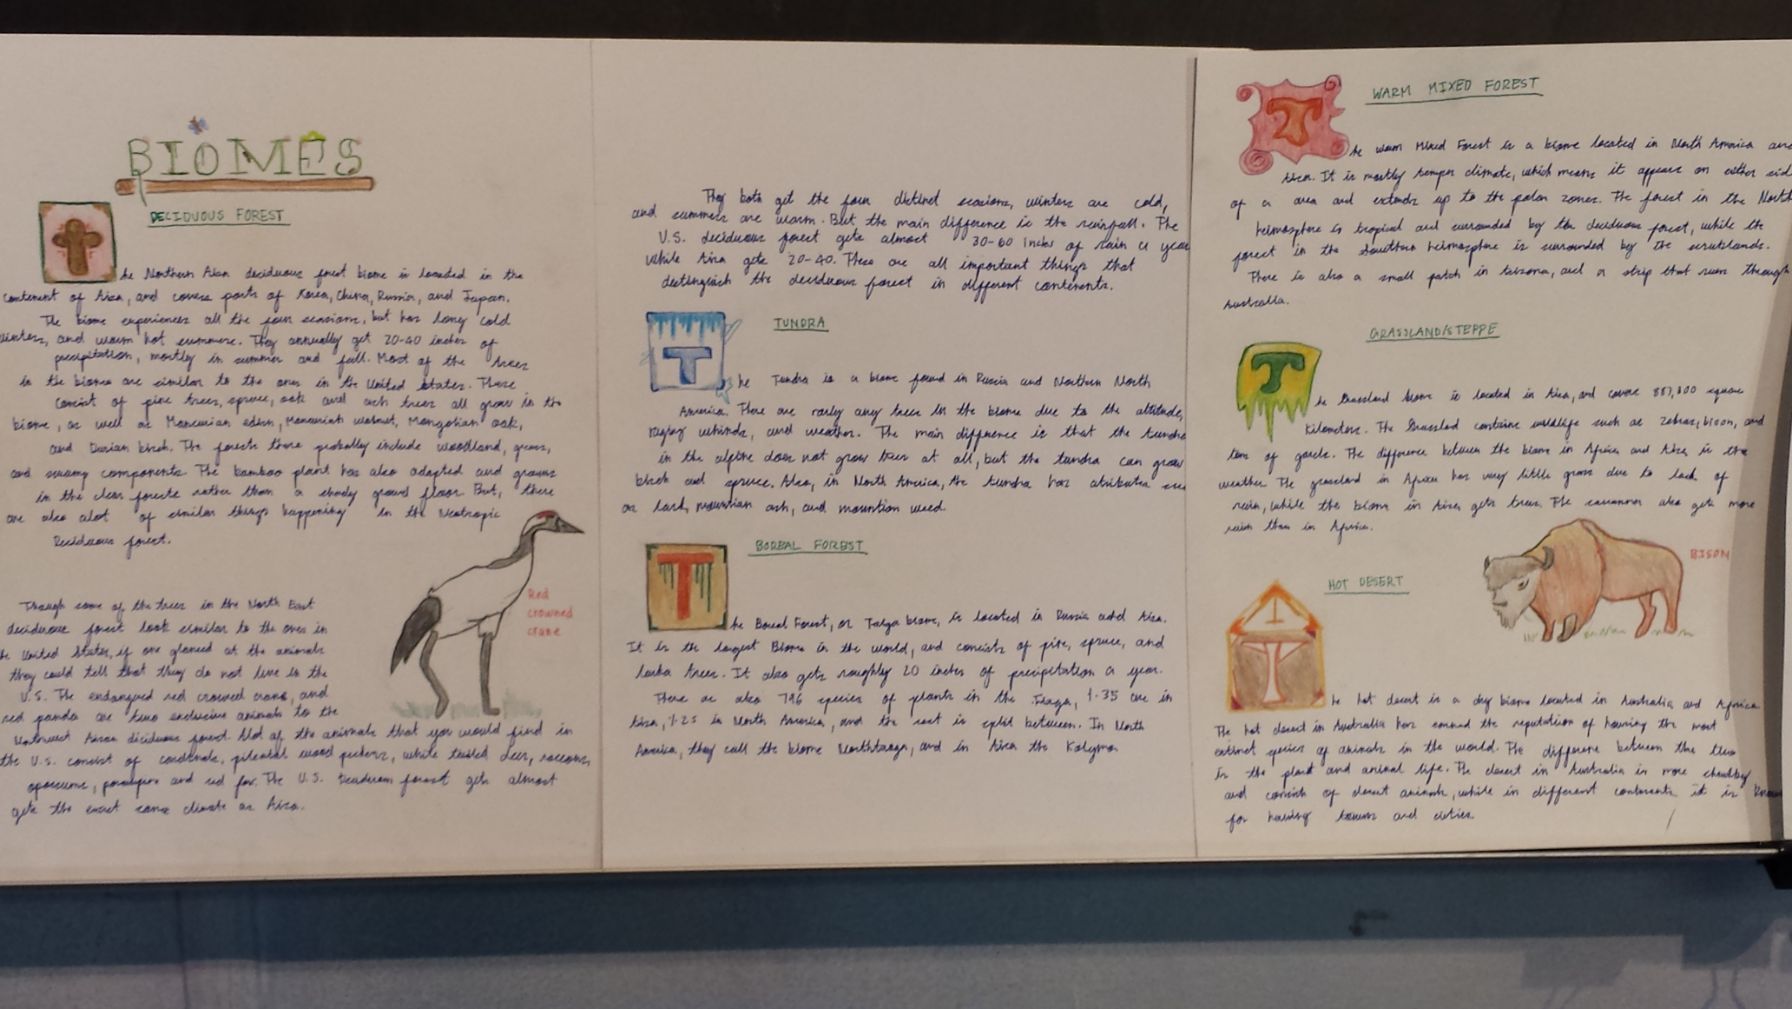 BIOMES
DECIDUOUS FOREST
The Northern Asian deciduous forest biome is located in the
contenent of Aisa, and covers parts of Korea, China, Russia, and Japan.
The biome experiences all the four seasions, but has long cold
winters, and warm hot summers. They annually get 20-40 inches of
precipitation, mostly in summer and fall. Most of the trees
in the biome are similar to the ones in the United States. These
consist of pine trees, spruce, oak and ash trees all grow in the
biome, as well as Mancurian walnut, Mongolian oak,
and birch. The forests there probally include woodland, grass,
and swamp components. The bamboo plant has also adapted and grows
in the clear forests rather than a shady ground floor. But, there
are also alot of similar things happening in the Neotropic
Deciduous forest.
Though some of the trees in the North East
deciduous forest look similar to the ones in
the United States, if one glanced at the animals
they could tell that they do not live in the
U.S. The endangered red crowned crane, and
red panda are two exclusive animals to the
Aisan deciduous forest. Alot of the animals that you would find in
the U.S. consist of wood peckers, white tailed deer,
and red fox. The U.S. forest gets almost
gets the exact same climate as Aisa.
Red
crowned
crane
They both get the four distinct seasions, winters are cold,
and summers are warm. But the main difference is the rainfall. The
U.S. deciduous forest gets almost 30-60 inches of rain a year
while Aisa gets 20-40. These are all important things that
the deciduous forest in different contenents.
TUNDRA
The Tundra is a biome found in Russia and Northern North
America. There are rarley any trees in the biome due to the altitude,
raging whinds, and weather. The main difference is that the tundra
in the alpine does not grow trees at all, but the tundra can grow
birch and spruce. Also, in North America, the tundra has
as larch, mountian ash, and mountion weed.
BOREAL FOREST
The Boreal Forest, or Taiga biome, is located in Russia and Aisa.
It is the largest Biome in the world, and consists of pine, spruce, and
trees. It also gets roughly 20 inches of precipitation a year.
There are also 796 species of plants in the Taiga, are in
Aisa, in North America, and the rest is split between. In North
America, they call the biome and in Aisa the Kolyma.
WARM MIXED FOREST
The Warm Mixed Forest is a biome located in North America and
Aisa. It is mostly climate, which means it appears on either side
of a area and extends up to the polar zones. The forest in the North
heimosphere is tropical and surrounded by the deciduous forest, while the
forest in the Southern heimosphere is surrounded by the scrublands.
There is also a small patch in Arizona, and a strip that runs through
Australia.
GRASSLAND/STEPPE
The Grassland biome is located in Aisa, and covers 887,800 square
kilometers. The Grassland contains wildlife such as zebras, bison, and
The difference between the biome in Africa and Aisa is the
weather. The grassland in Africa has very little grass due to lack of
rain, while the biome in Aisa gets trees. The savannas also gets more
rain than in Africa.
BISON
HOT DESERT
The hot desert is a dry biome located in Australia and Africa.
The hot desert in Australia has earned the reputation of having the most
extinct species of animals in the world. The difference between the two
is the plant and animal life. The desert in Australia is more shrubby
and consists of desert animals, while in different contenents it is known
for having towns and cities.